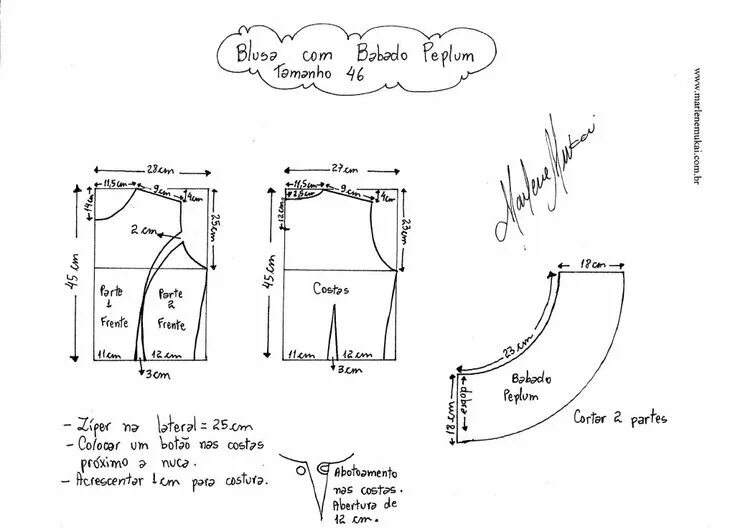 Blusa com Babado Peplum
Tamanho 46
www.marlenemukai.com.br
Marlene Mukai
28cm
11,5cm
9cm
4cm
14cm
25cm
2cm
45cm
Parte 1 Frente
Parte 2 Frente
11cm
12cm
3cm
27cm
11,5cm
9cm
4cm
2,5cm
12cm
23cm
45cm
Costas
11cm
12cm
3cm
18cm
23cm
Babado
Peplum
dobra
18cm
Cortar 2 partes
- Zíper na lateral = 25cm
- Colocar um botão nas costas
próximo a nuca.
- Acrescentar 1cm para costura.
Abotoamento
nas costas.
Abertura de
12 cm.